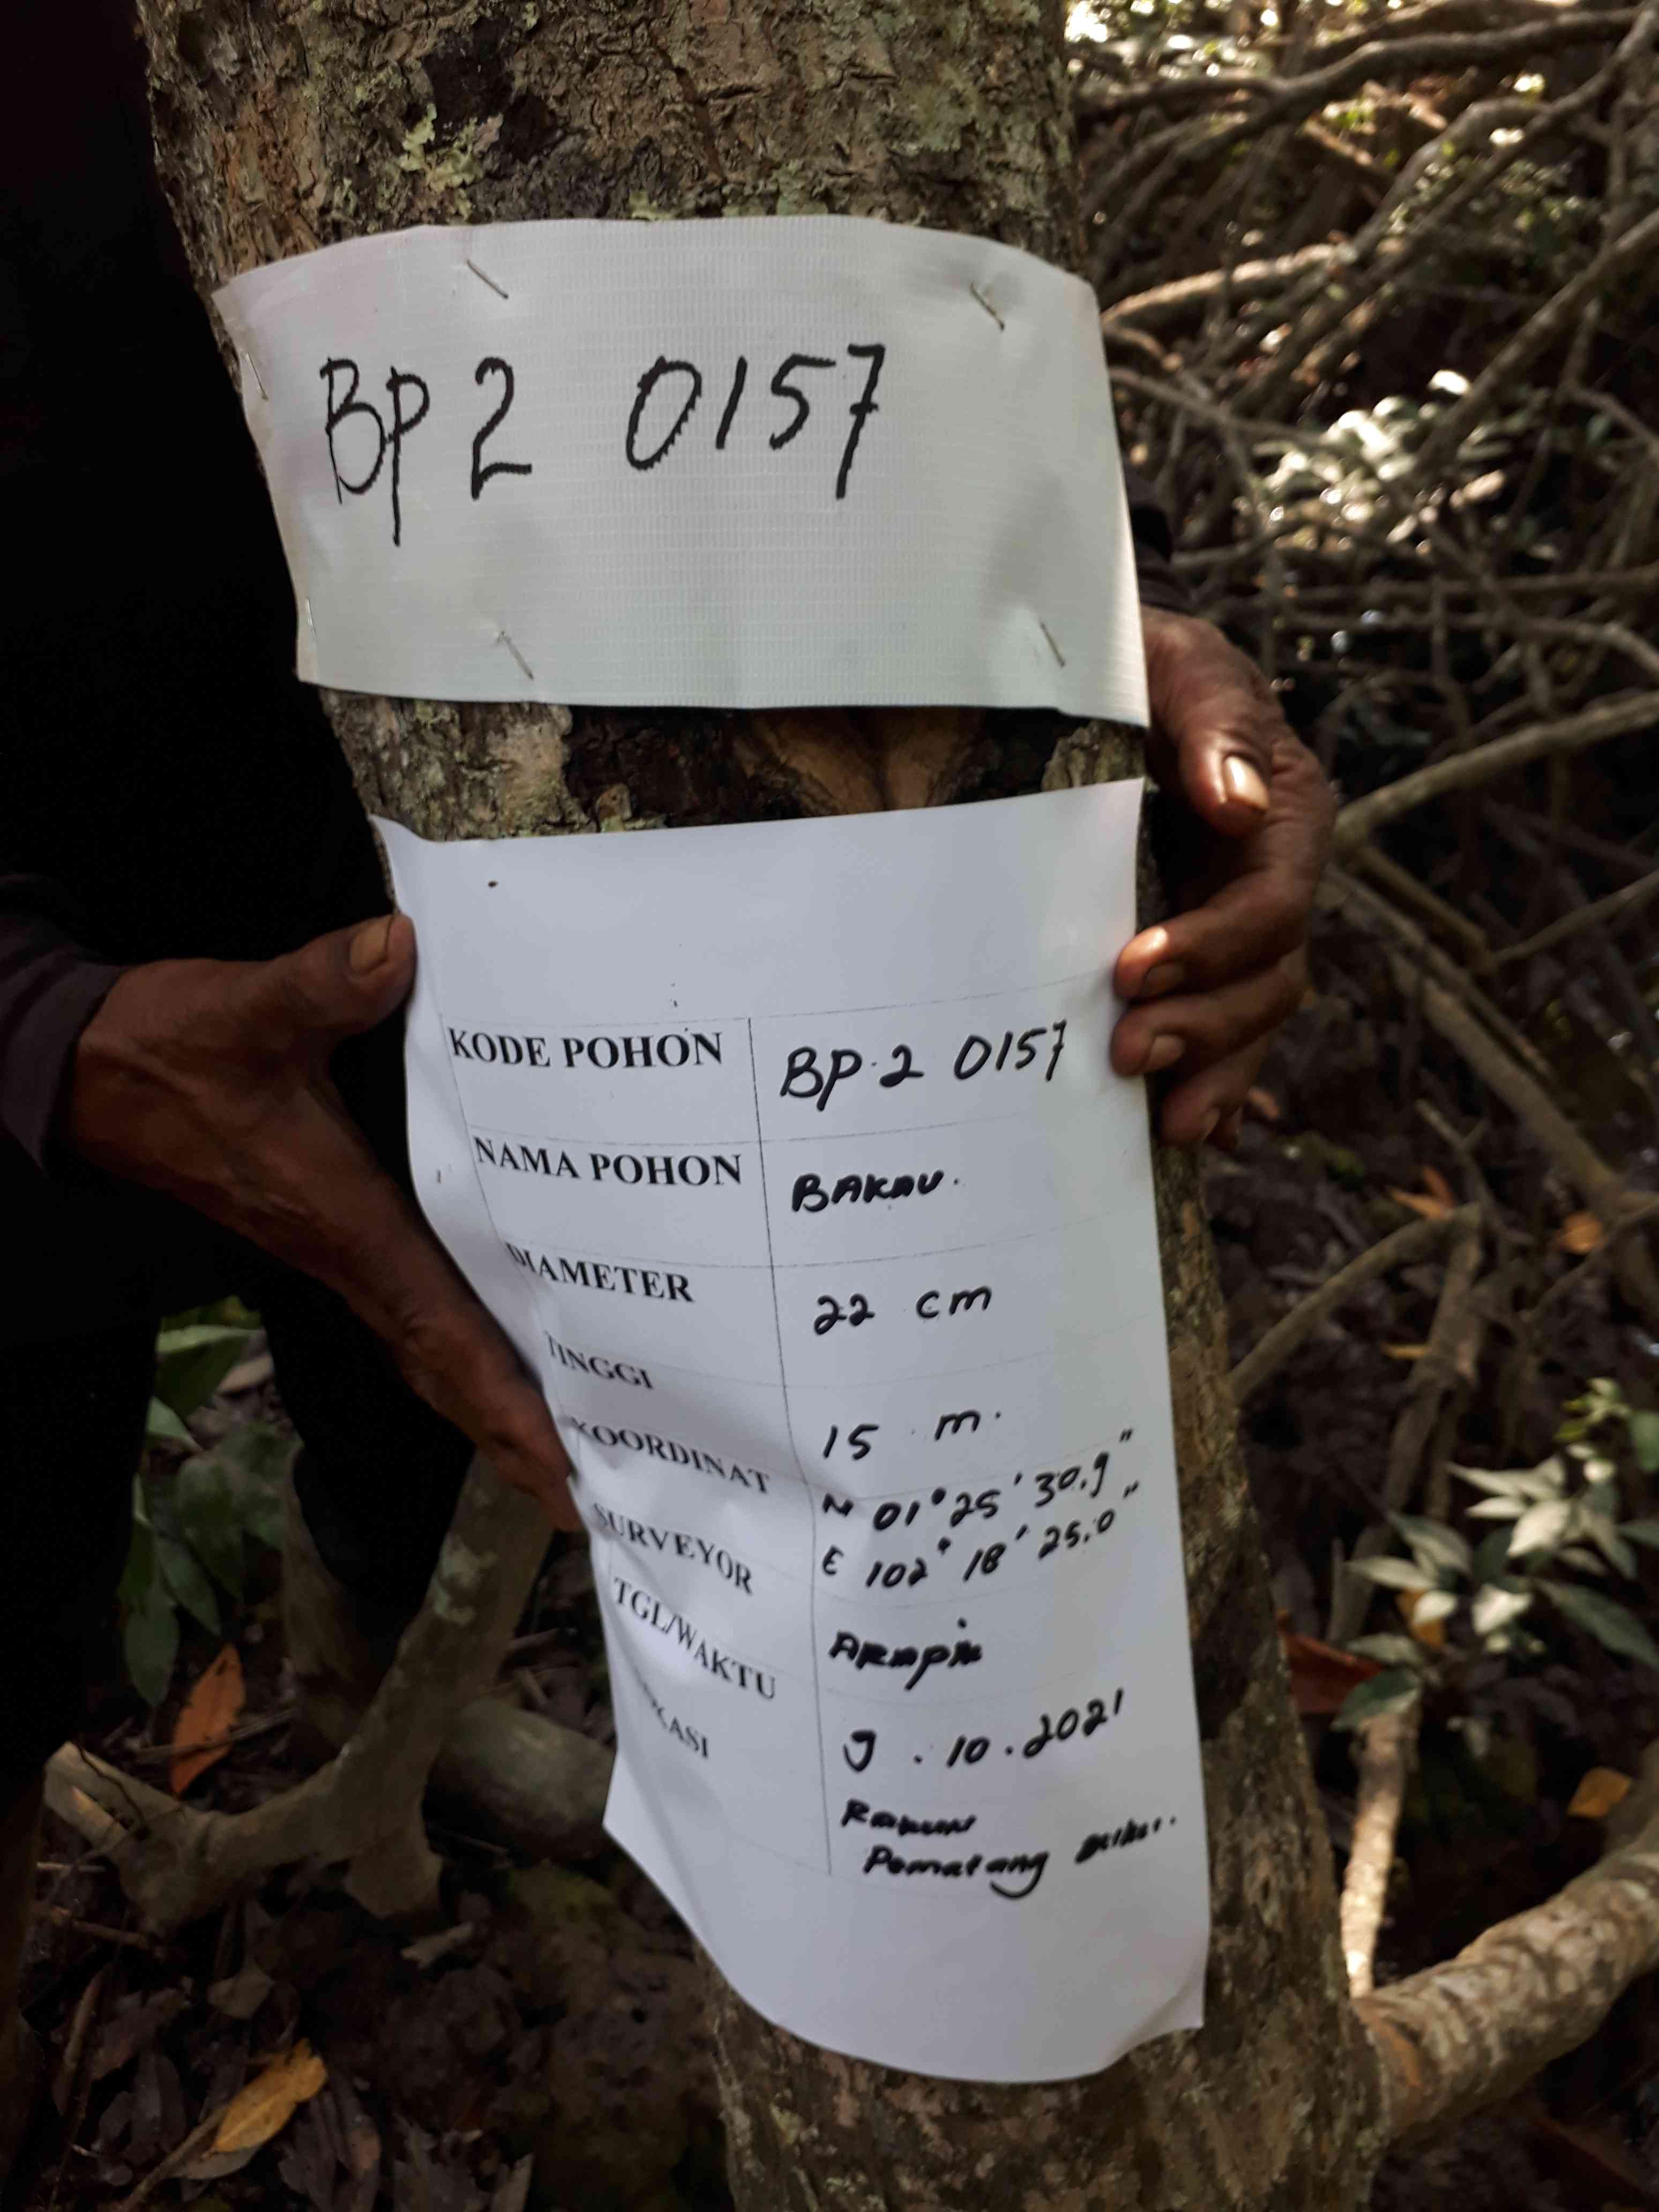 BP 2 0157
KODE POHON BP.2 0157
NAMA POHON BAKAU.
DIAMETER 22 cm
TINGGI 15 m.
KOORDINAT N 01° 25' 30.9"
E 102° 18' 25.0"
SURVEYOR ARAPIN
TGL/WAKTU 9.10.2021
LOKASI
Pematang